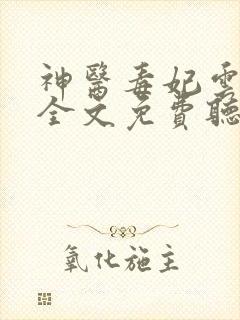 神醫毒妃
全文免費聽
氧化施主